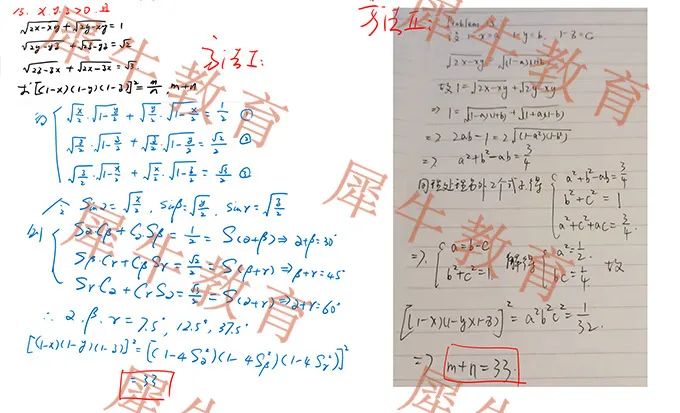 15. x.y.z>0.且
√(2x-xy) + √(2y-xy) = 1
√(2y-yz) + √(2z-yz) = √2
√(2z-zx) + √(2x-zx) = √3.
求[(1-x)(1-y)(1-z)]² = m/n, m+n
方法I:
√(x/2)·√(1-y/2) + √(y/2)·√(1-x/2) = 1/2 ①
√(y/2)·√(1-z/2) + √(z/2)·√(1-y/2) = √2/2 ②
√(z/2)·√(1-x/2) + √(x/2)·√(1-z/2) = √3/2 ③
Sinα = √(x/2), Sinβ = √(y/2), Sinγ = √(z/2)
则 SαCβ + CαSβ = 1/2 = S(α+β) ⇒ α+β=30°
SβCγ + CβSγ = √2/2 = S(β+γ) ⇒ β+γ=45°
SγCα + CγSα = √3/2 = S(α+γ) ⇒ α+γ=60°
∴ α.β.γ = 7.5°, 12.5°, 37.5°
[(1-x)(1-y)(1-z)]² = [(1-4Sα²)(1-4Sβ²)(1-4Sγ²)]²
= 33
方法II:
Problems 15
设 1-x=a 1-y=b, 1-z=c
√(2x-xy) = √((1-a)(1+b))
故 1 = √(2x-xy) + √(2y-xy)
⇒ 1 = √((1-a)(1+b)) + √((1+a)(1-b))
⇒ 2ab-1 = 2√((1-a²)(1-b²))
⇒ a²+b²-ab = 3/4
同理处理另外2个式子.得
a²+b²-ab = 3/4
b²+c² = 1
a²+c²+ac = 3/4.
⇒ a=b-c
b²+c²=1
解得
a²=1/2.
bc=1/4.
故
[(1-x)(1-y)(1-z)]² = a²b²c² = 1/32.
⇒ m+n=33.
犀牛教育
犀牛教育
犀牛教育
犀牛教育